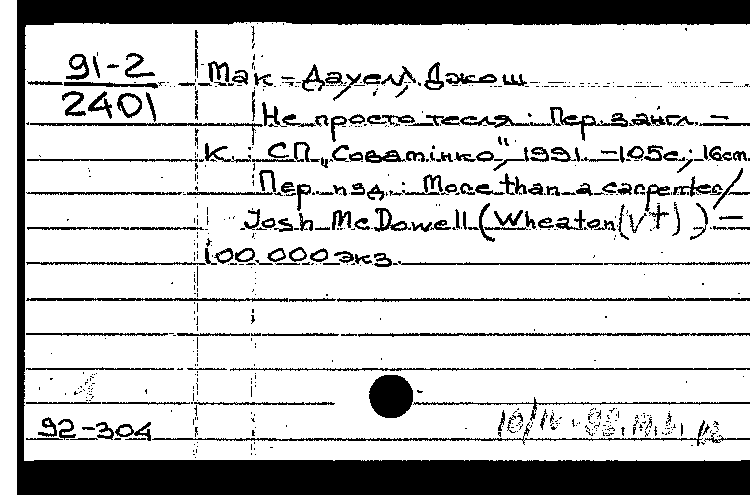 91-2
2401
Мак-Дауелл, Джош
Не просто тесля : Пер. з англ. –
К. : СП „Соватінко", 1991. –105с.; 16cm.
Пер. изд. : More than a carpenter/
Josh McDowell (Wheaton
100.000 экз.
92-304